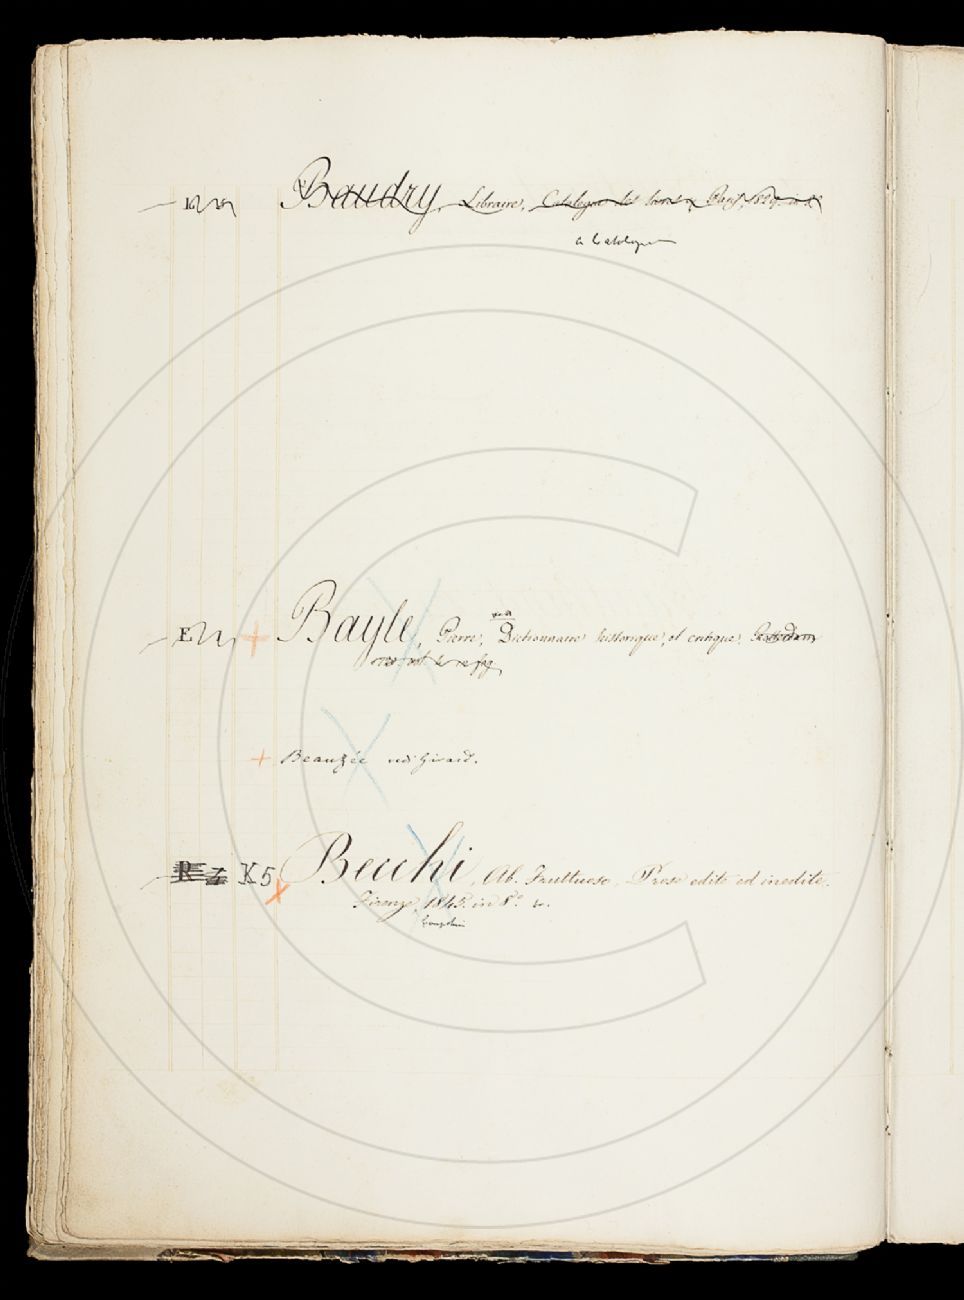 Baudry, Libraire, Catalogue in 8
a Catalogue
E Bayle, Pierre, Dictionnaire historique, et critique.
Beauzée vedi Girard.
R K5 Becchi, Ab. Fruttuoso, Prose edite ed inedite.
Firenze, 1845. in 8.°